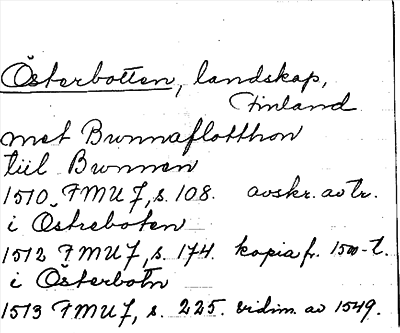 Österbotten, landskap,
Finland
met Bwnnaflotthon
tiil Bwnnen
1510 FMU 7, s. 108. avskr. av tr.
i Östreboten
1512 FMU 7, s. 174. kopia fr. 1500-t.
i Österbotn
1513 FMU 7, s. 225. vidim. av 1549.